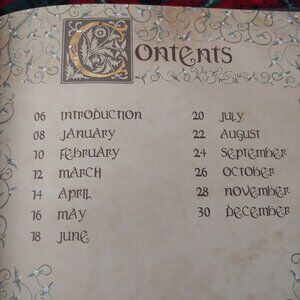 Contents
06 Introduction
08 January
10 February
12 March
14 April
16 May
18 June
20 July
22 August
24 September
26 October
28 November
30 December